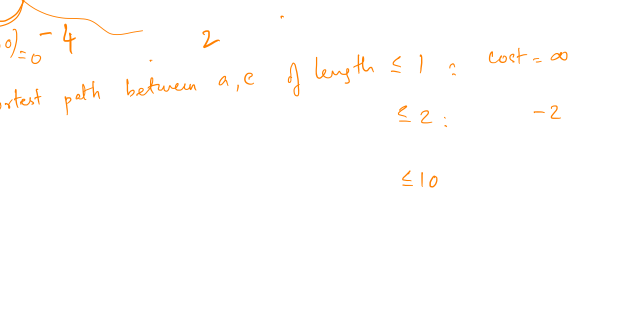 0)=0 -4 2
ortest path between a, c of length ≤ 1 : cost = ∞
≤ 2 : -2
≤ 10